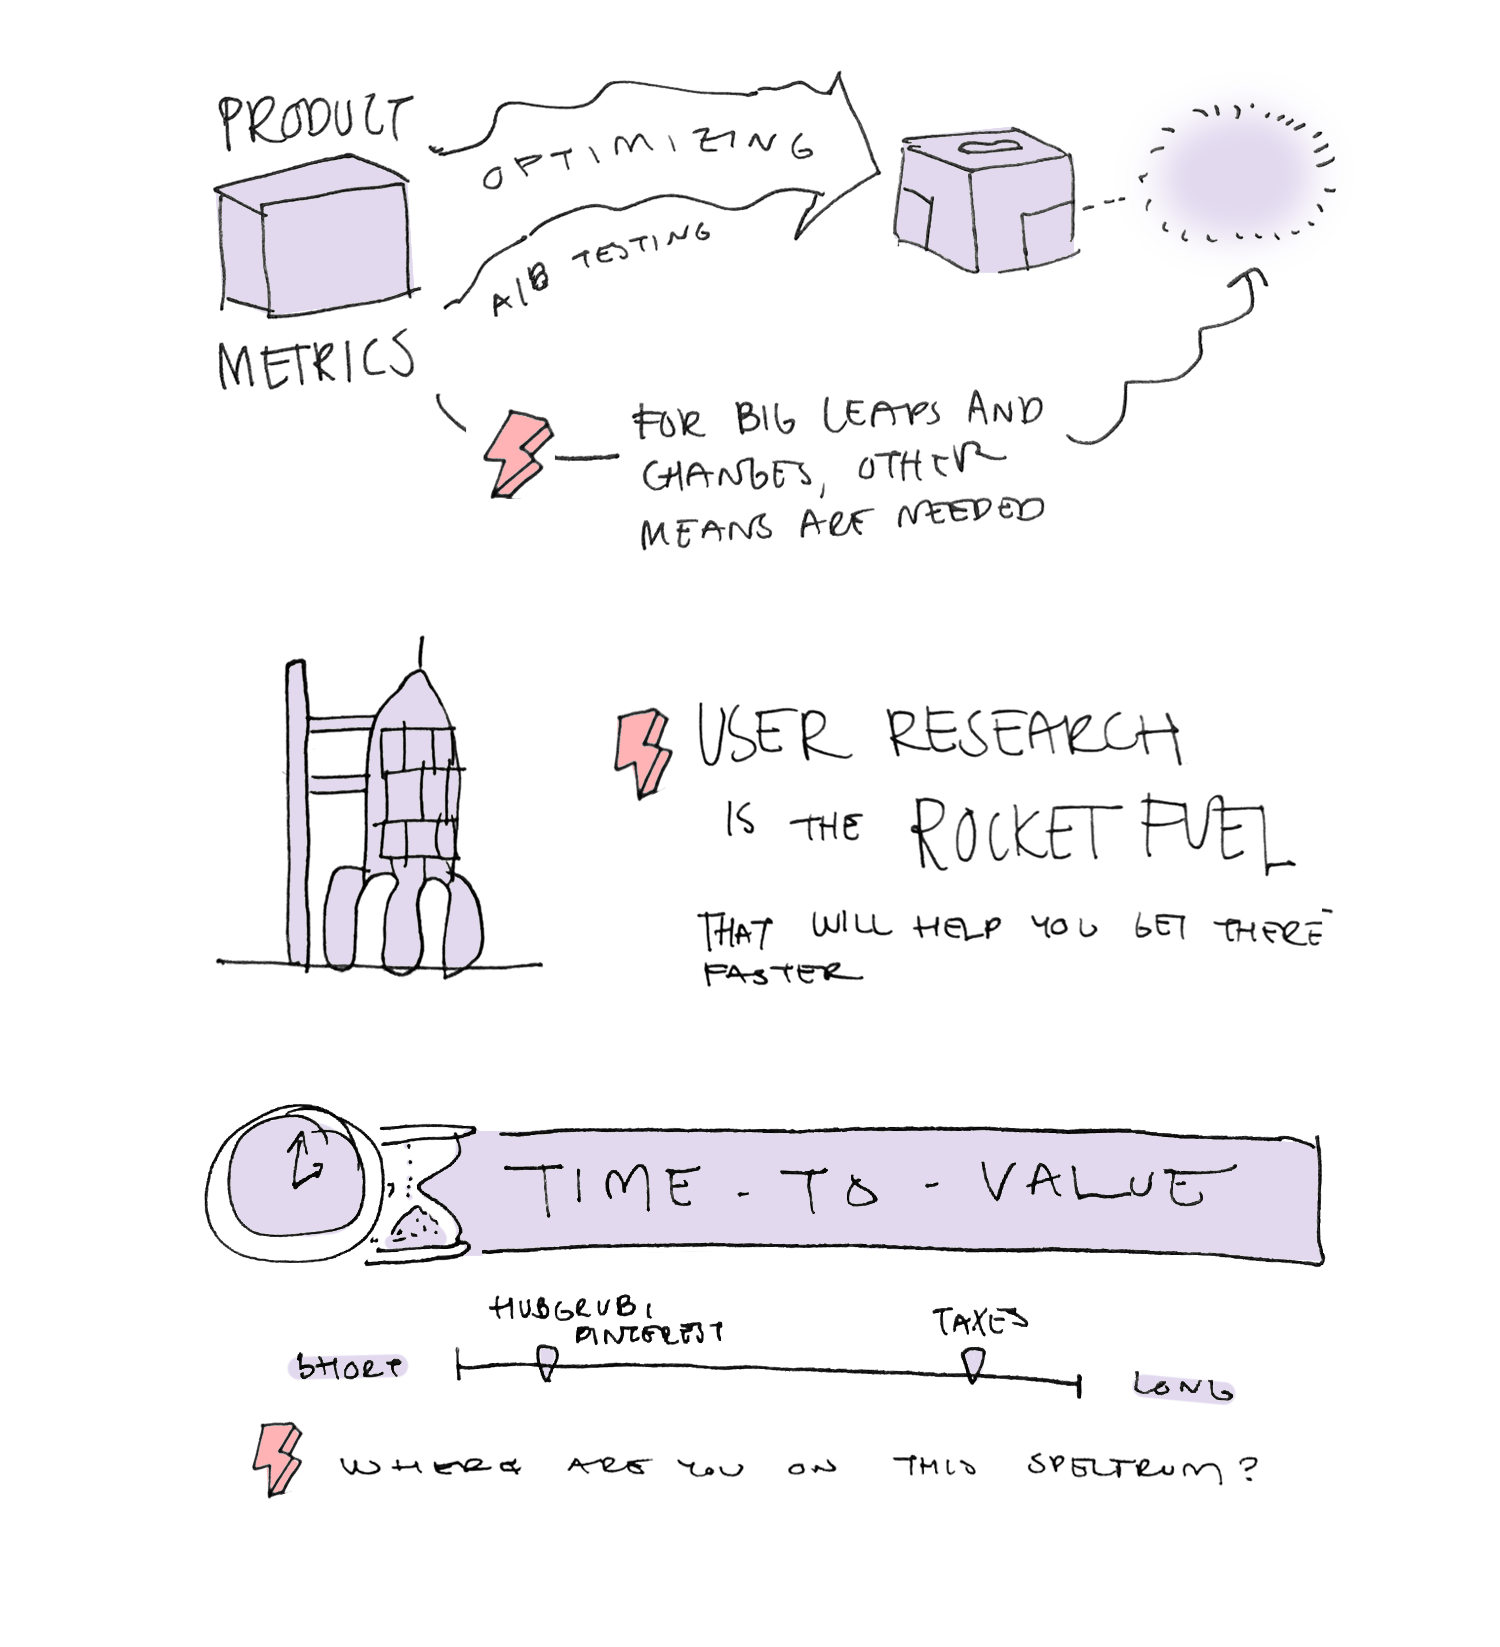 PRODUCT
METRICS
OPTIMIZING
A/B TESTING
FOR BIG LEAPS AND
CHANGES, OTHER
MEANS ARE NEEDED
USER RESEARCH
IS THE ROCKET FUEL
THAT WILL HELP YOU GET THERE
FASTER
TIME-TO-VALUE
HUBGRUB,
PINTEREST
TAXES
SHORT
LONG
WHERE ARE YOU ON THIS SPECTRUM?